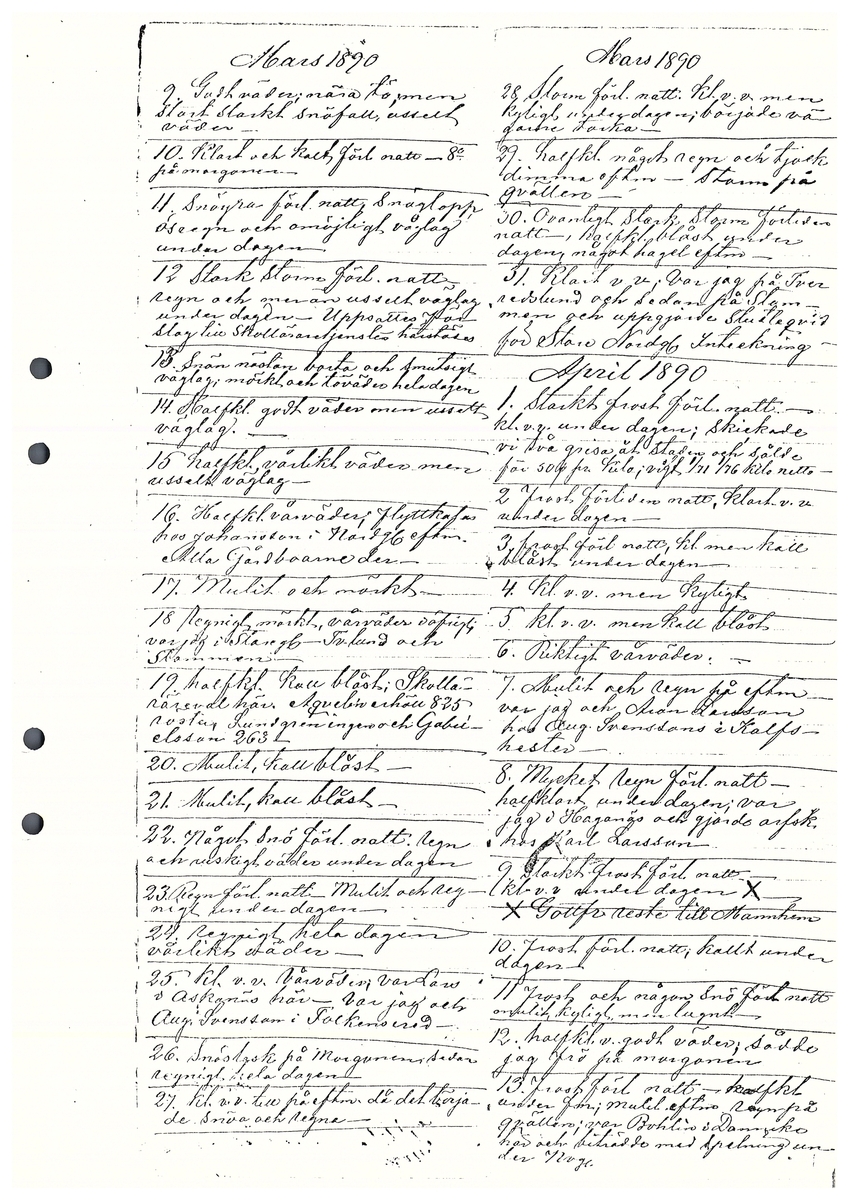 Mars 1890
9. Godt väder, nära tö, men
stört starkt snöfall, usselt
väder —
10. Klart och kalt förl natt — 8°
på morgonen —
11. Snöyra förl. natt, Snöglopp,
ösregn och omöjligt väglag
under dagen —
12 Stark Storm förl. natt
regn och mer än usselt väglag
under dagen — Uppsattes För
slag till Skolläraretjensten
13. Snön nästan borta och smutsigt
väglag; mörkt och töväder hela dagen
14. Halfkl. godt väder men usselt
väglag. —
15 halfkl, vårlikt väder men
usselt väglag —
16. Halfkl. vårväder; flyttkafas
hos Johansson i Nordg eftm.
Alla Gårdboarne der —
17. Mulit och mörkt —
18 Regnigt, mörkt, vårväder
var jag i Storeg — Tv.lund och
Stommen —
19 halfkl. Kall blåst; Skollä-
rareval här. Aqvelin erhöll 825
röster Lundgren ingen och Gabri-
elsson 263 —
20. Mulit, kall blåst —
21. Mulit, kall blåst —
22. Något Snö förl. natt. regn
och ruskigt väder under dagen
23. Regn förl. natt — Mulit och reg-
nigt under dagen —
24. regnigt hela dagen
vårlikt väder —
25. Kl. v. v. Vårväder; var Lars
i Askenäs här — Var jag och
Aug. Svensson i Folkenered —
26. Snöslask på Morgonen; sedan
regnigt hela dagen
27. kl. v.v. till på eftm. då det börja-
de snöa och regna —
Mars 1890
28. Storm förl. natt. Kl. v.v. men
kyligt under dagen; började vä
garne torka —
29. halfkl. något regn och tjock
dimma eftm — Storm på
qvällen —
30. Ovanligt Stark Storm förliden
natt —, halfkl. blåst under
dagen, något hagel eftm —
31. Klart v v; Var jag på Tver
redslund och sedan på Stom-
men och uppgjorde
för Store Nordg Inteckning —
April 1890
1. Starkt frost förl. natt. —
kl. v.v. under dagen; skickade
vi två grisa åt staden och sålde
för 50 pr. Kilo; vigt 171 176 kilo netto —
2 Frost förliden natt, klart. v. v.
under dagen —
3. frost förl natt, kl. men kall
blåst under dagen —
4. Kl. v. v. men kyligt
5 kl. v. v. men kall blåst
6. Riktigt vårväder. —
7. Mulit och regn på eftm —
var jag och Aron Larsson
hos Aug. Svenssons i Kalfs-
hester —
8. Mycket regn förl. natt —
halfklart under dagen; var
jag i Hagangs och gjorde arfsk.
hos Karl Larsson
9 Starkt frost förl. natt —
kl. v. v under dagen X —
X Gottfr reste till Mannhem
10. Frost förl. natt; kallt under
dagen —
11 Frost och någon Snö förl natt
mulit, kyligt, men lugnt —
12. halfkl. v. godt väder; sådde
jag frö på morgonen
13 Frost förl natt — halfkl
under fm; mulit eftm regn på
qvällen; var Bohlin i Dannike
här och biträdde med spelning un-
der Högm.